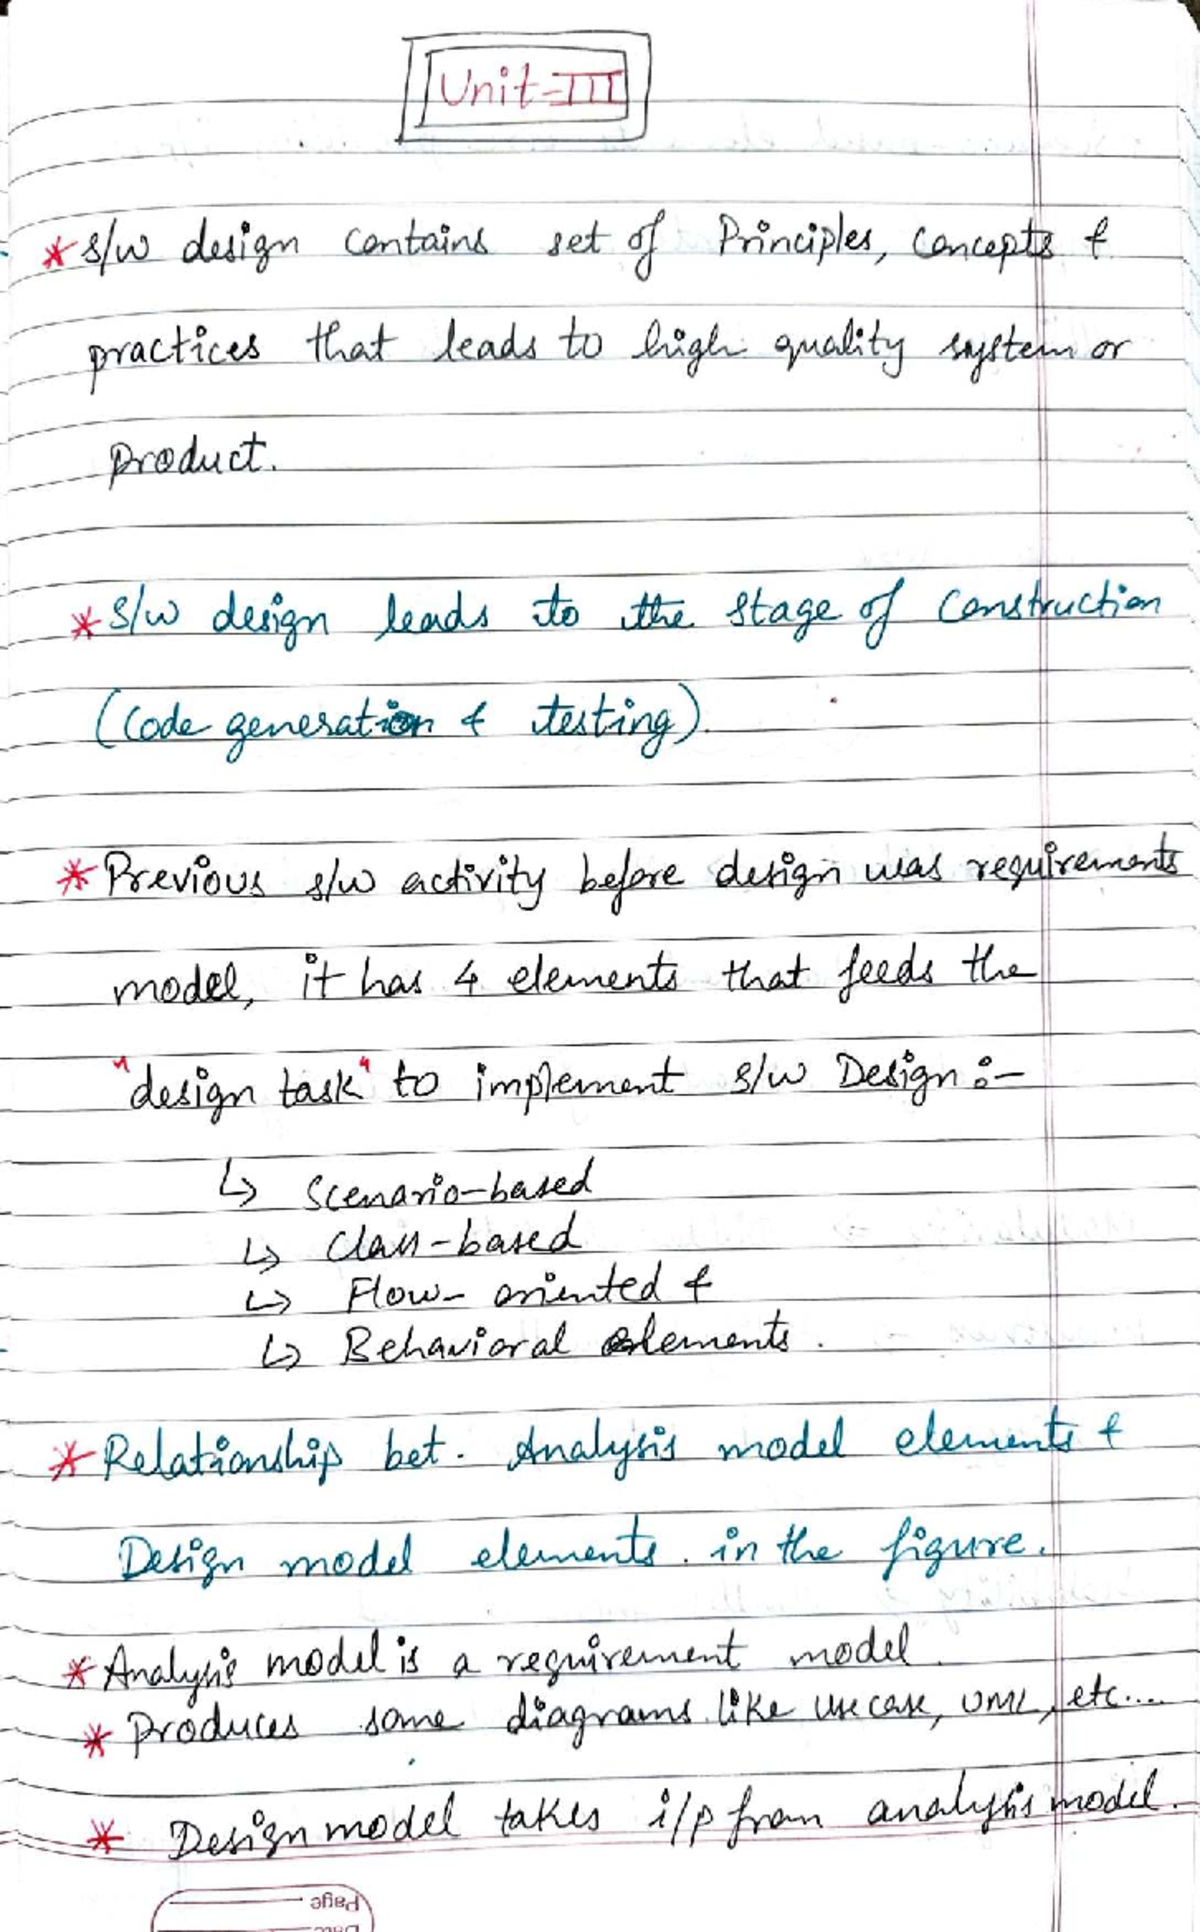 Unit-III
* S/w design contains set of Principles, Concepts &
practices that leads to high quality system or
product.
* S/w design leads to the stage of Construction
(Code generation & testing).
* Previous s/w activity before design was requirements
model, it has 4 elements that feeds the
"design task" to implement s/w Design :-
↳ Scenario-based
↳ Class-based
↳ Flow-oriented &
↳ Behavioral elements.
* Relationship bet. Analysis model elements &
Design model elements. in the figure.
* Analysis model is a requirement model.
* Produces some diagrams like use case, UML, etc....
* Design model takes i/p from analysis model.
Page